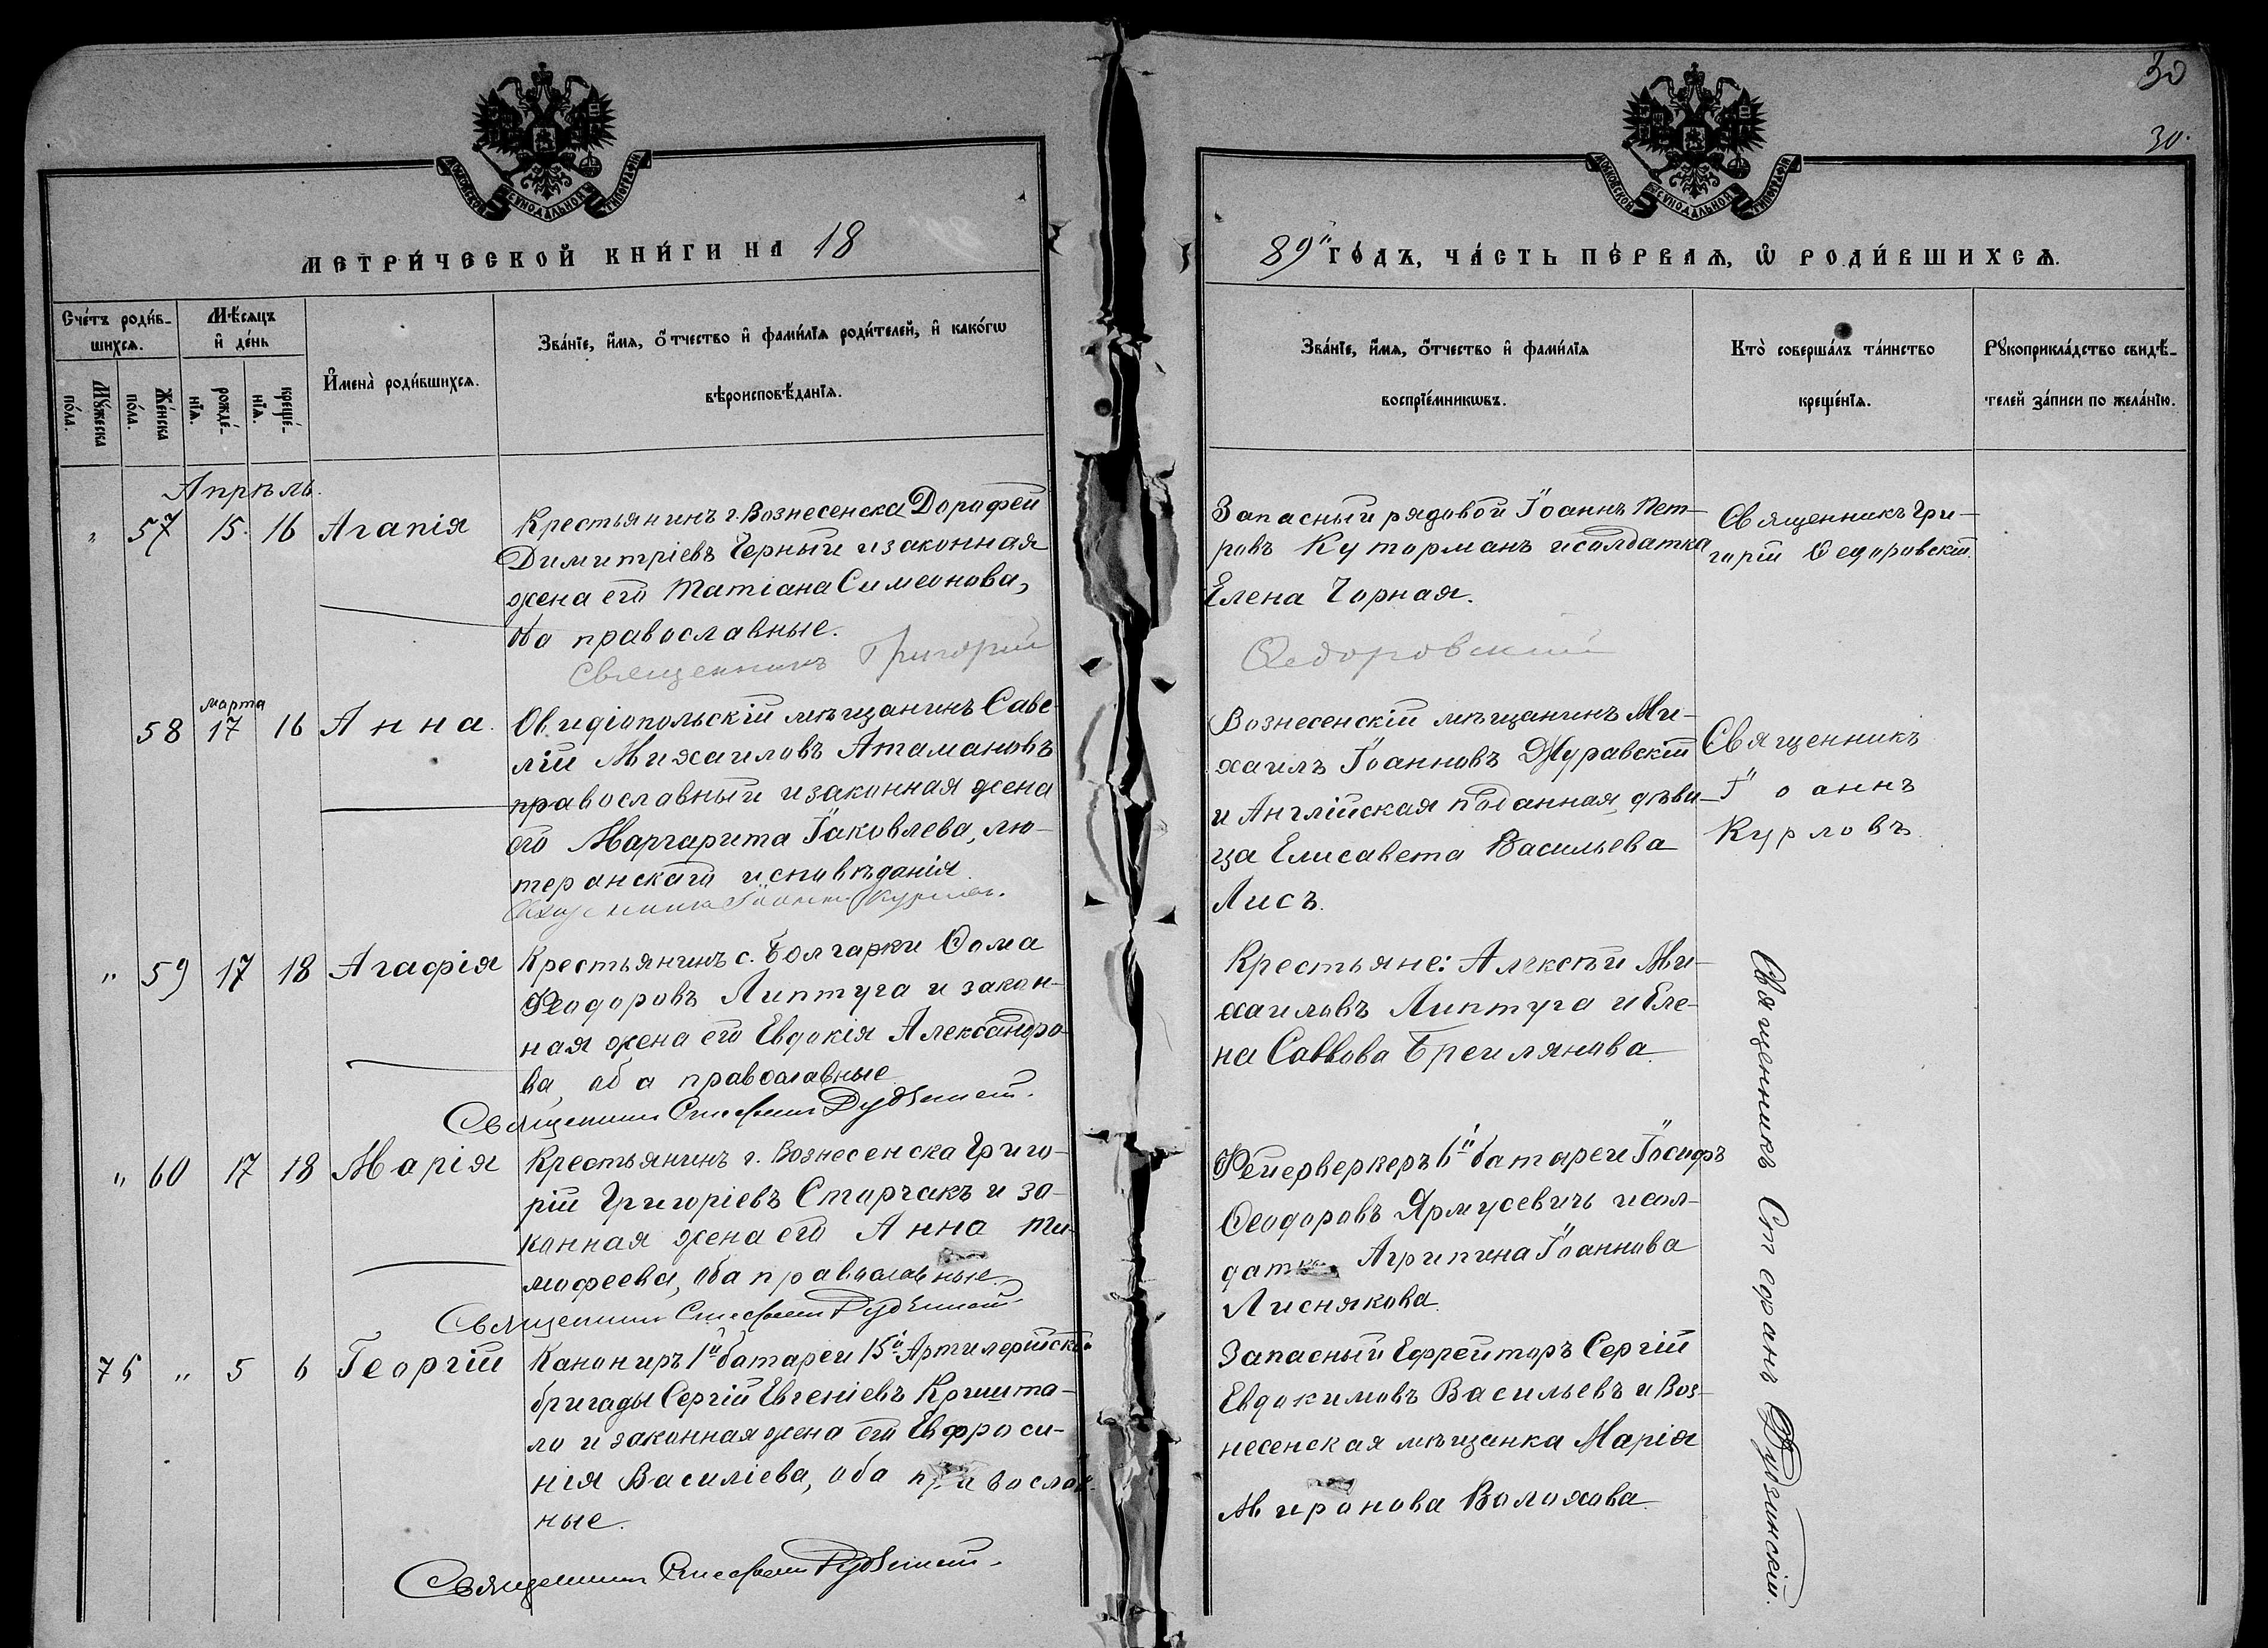 30
30.
МОСКОВСКОЙ СѴНОДАЛЬНОЙ ТИПОГРАФІИ
МОСКОВСКОЙ СѴНОДАЛЬНОЙ ТИПОГРАФІИ
МЕТРИ́ЧЕСКОЙ КНИ́ГИ НА 18
89й ГО́ДЪ, ЧА́СТЬ ПЕ́РВАѦ, Ѡ РОДИ́ВШИХСѦ.
Сче́тъ роди́в-
шихсѧ.
Мꙋ́жеска по́ла.
Же́нска по́ла.
Мѣ́сѧцъ
и҆ де́нь
рожде́-
нїѧ.
креще́-
нїѧ.
И҆мена̀ роди́вшихсѧ.
Зва́нїе, и҆́мѧ, ѻ҆́тчество и҆ фами́лїѧ роди́телей, и҆ како́гѡ
вѣроисповѣ́данїѧ.
Зва́нїе, и҆́мѧ, ѻ҆́тчество и҆ фами́лїѧ
воспрїе́мникѡвъ.
Кто̀ соверша́лъ та́инство
креще́нїѧ.
Рꙋкоприкла́дство свидѣ́-
телей за́писи по жела́нїю.
Апрѣль.
" 57 15. 16 Агапія
Крестьянинъ г. Вознесенска Дорофей
Димитріевъ Черный и законная
жена его Татіана Симеонова,
оба православные.
Священникъ Григорій
Запасный рядовой Іоаннъ Пет-
ровъ Куторманъ и солдатка
Елена Чорная.
Ѳедоровскій
Священникъ Гри-
горій Ѳедоровскій.
58 марта 17 16 Анна.
Овидіопольскій мѣщанинъ Саве-
лій Михаиловъ Атамановъ
православный и законная жена
его Маргарита Іаковлева, лю-
теранскаго исповѣданія.
Священникъ Іоаннъ Курловъ.
Вознесенскій мѣщанинъ Ми-
хаилъ Іоанновъ Журавскій
и Англійская поданная дѣви-
ца Елисавета Васильева
Лисъ.
Священникъ
Іоаннъ
Курловъ.
" 59 17 18 Агафія
Крестьянинъ с. Болгарки Ѳома
Феодоровъ Липтуга и закон-
ная жена его Евдокія Александро-
ва, оба православные
Священникъ Стефанъ Рудзинскій.
Крестьяне: Алексѣй Ми-
хаиловъ Липтуга и Еле-
на Саввова Бреилянова.
Священникъ Стефанъ Рудзинскій.
" 60 17 18 Марія
Крестьянинъ г. Вознесенска Григо-
рій Григоріевъ Старчакъ и за-
конная жена его Анна Ти-
мофеева, оба православные.
Священникъ Стефанъ Рудзинскій.
Фейерверкеръ 6й батареи Іосифъ
Ѳеодоровъ Ярмусевичъ и сол-
датка Агрипина Іоаннова
Лиснякова.
76 " 5 6 Георгій
Канониръ 1й батареи 15й Артилерійской
бригады Сергій Евгеніевъ Кришта-
ло и законная жена его Евфроси-
нія Василіева, оба православ-
ные.
Священникъ Стефанъ Рудзинскій.
Запасный Ефрейторъ Сергій
Евдокимовъ Васильевъ и Воз-
несенская мѣщанка Марія
Миронова Волохова.